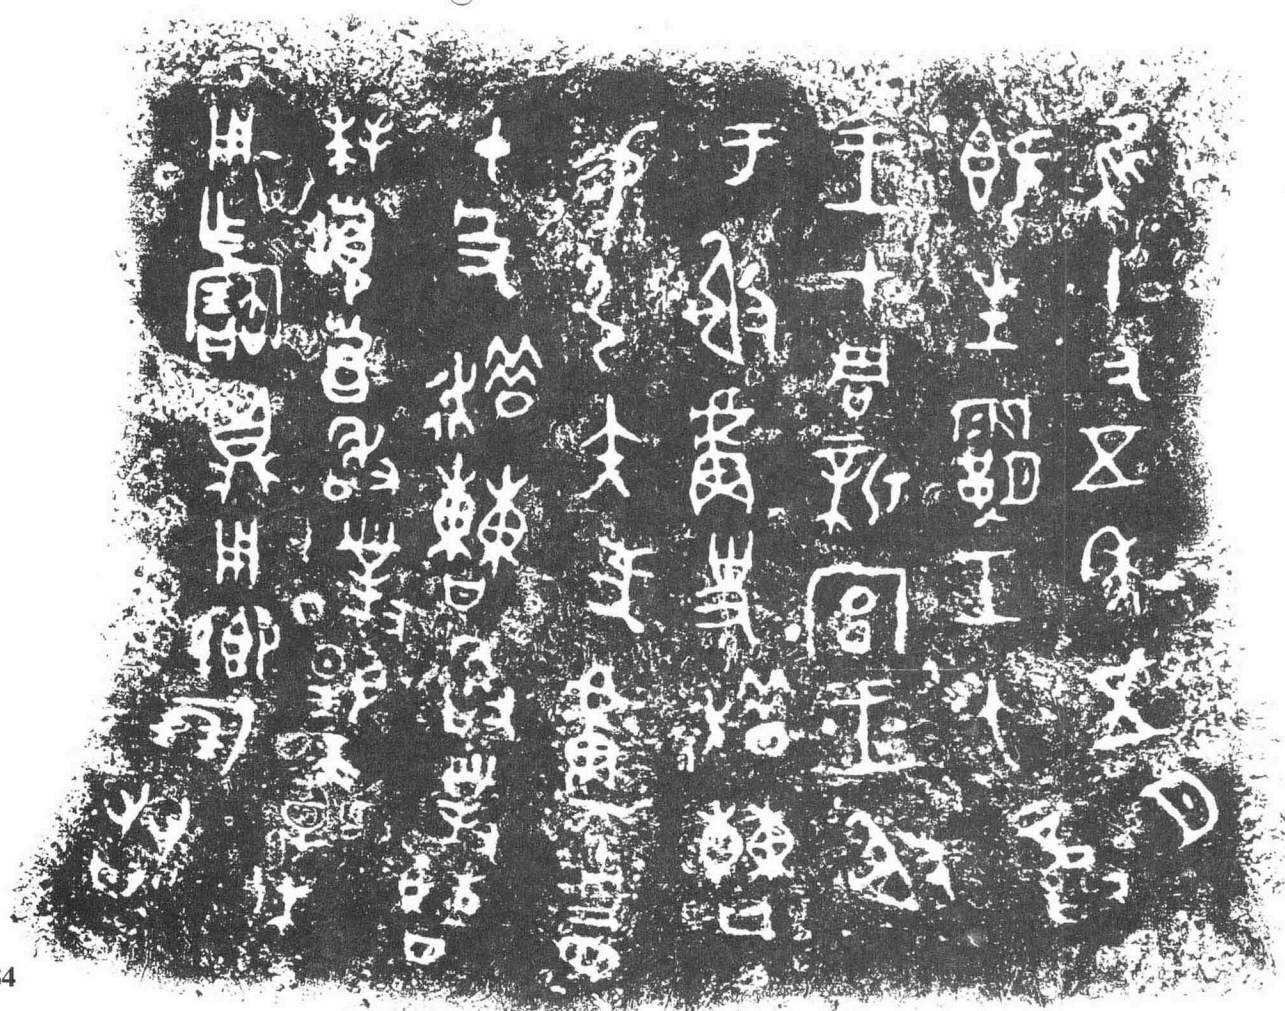 隹十又五年五月
既生霸壬午龏
王才周新宮王射
于射盧史趞曹
易弓矢虎盧冑
殳趞曹敢對曹
拜稽首敢對揚天子休
用乍寶鼎用鄉倗友